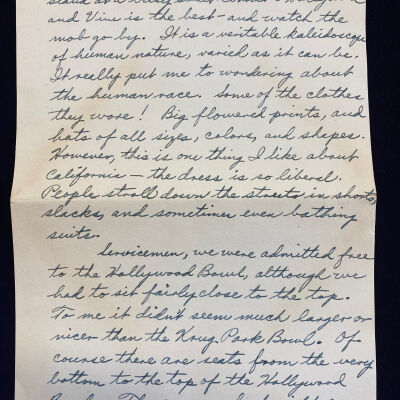 stand on a busy street corner - Hollywood
and Vine is the best - and watch the
mob go by. It is a veritable kaleidoscope
of human nature, varied as it can be.
It really put me to wondering about
the human race. Some of the clothes
they wore! Big flowered prints, and
hats of all sizes, colors, and shapes.
However, this is one thing I like about
California — the dress is so liberal.
People stroll down the streets in shorts,
slacks, and sometimes even bathing
suits.
Servicemen, we were admitted free
to the Hollywood Bowl, although we
had to sit fairly close to the top.
To me it didn't seem much larger or
nicer than the Krug Park Bowl. Of
course there are seats from the very
bottom to the top of the Hollywood